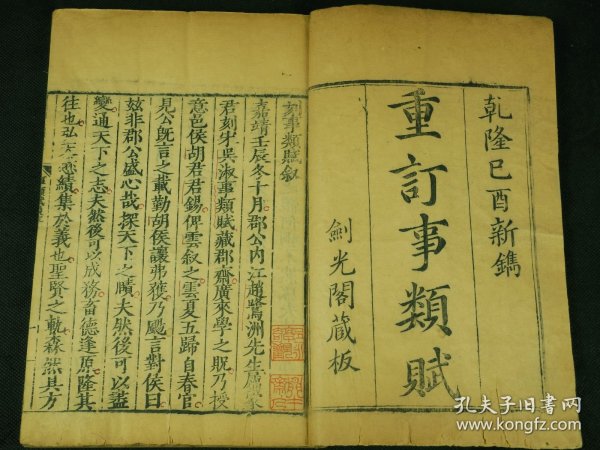 乾隆己酉新鐫
重訂事類賦
劍光閣藏板
刻事類賦叙
嘉靖壬辰冬十月郡公內江趙鶩洲先生屬冢
君刻宋吳淑事類賦藏郡齋廣來學之貺乃授
意邑侯胡君君錫俾雲叙之雲夏五歸自春官
見公旣言之載勤胡侯讓弗獲乃颺言對侯曰
茲非郡公盛心哉探天下之賾夫然後可以盡
變通天下之志夫然後可以成務畜德逢原隆其
往也弘天懋績集於義也聖賢之軌森然具方
孔夫子旧书网
www.kongfz.com